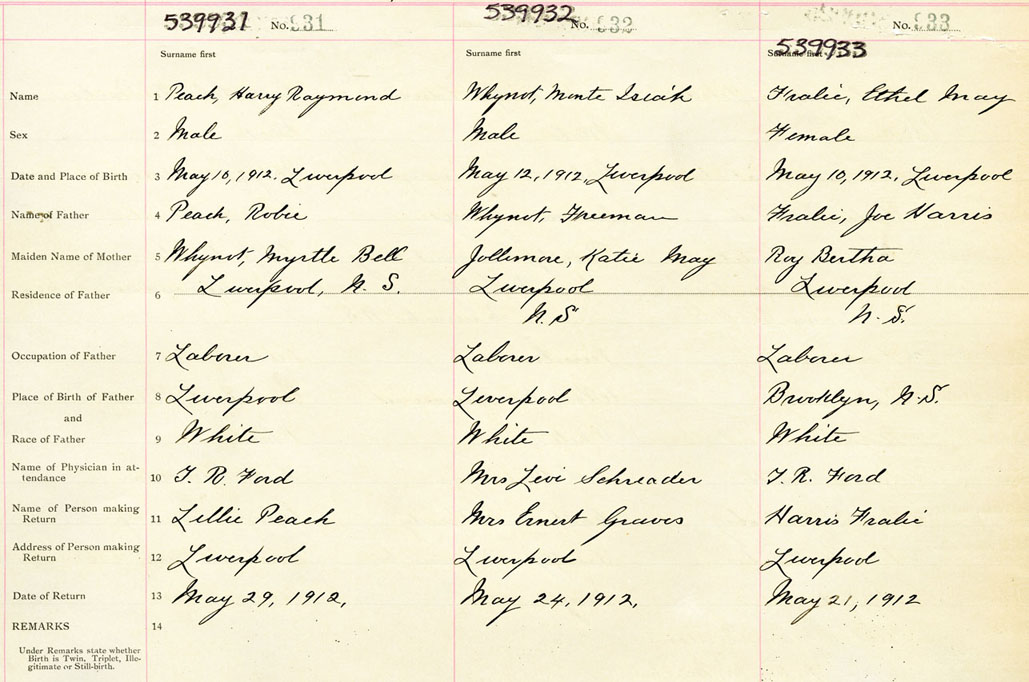 539931 No. 931 539932 No. 932 539933 No. 933
Surname first Surname first Surname first
Name 1 Peach, Harry Raymond Whynot, Monte Isiah Fralic, Ethel May
Sex 2 Male Male Female
Date and Place of Birth 3 May 10, 1912. Liverpool May 12, 1912, Liverpool May 10, 1912, Liverpool
Name of Father 4 Peach, Robie Whynot, Freeman Fralic, Joe Harris
Maiden Name of Mother 5 Whynot, Myrtle Bell Jollimore, Katie May Roy Bertha
Residence of Father 6 Liverpool, N. S. Liverpool Liverpool
N. S. N. S.
Occupation of Father 7 Laborer Laborer Laborer
Place of Birth of Father 8 Liverpool Liverpool Brooklyn, N. S.
and
Race of Father 9 White White White
Name of Physician in at-
tendance 10 T. R. Ford Mrs Levi Schreader T. R. Ford
Name of Person making
Return 11 Lillie Peach Mrs Ernest Graves Harris Fralic
Address of Person making
Return 12 Liverpool Liverpool Liverpool
Date of Return 13 May 29, 1912, May 24, 1912, May 21, 1912
REMARKS 14
Under Remarks state whether
Birth is Twin, Triplet, Ille-
gitimate or Still-birth.